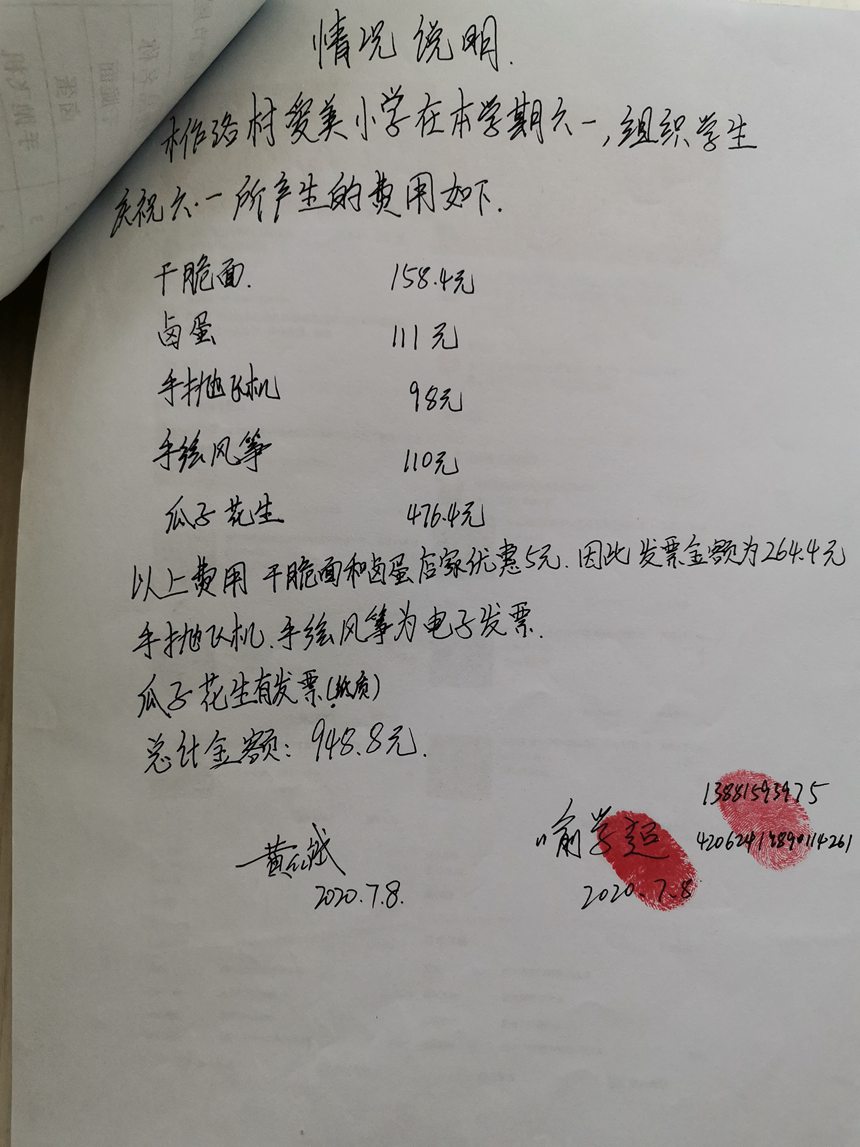 情况说明.
村爱美小学在本学期六一,组织学生
庆祝六.一所产生的费用如下.
干脆面. 158.4元
卤蛋 111元
手抛飞机 98元
手绘风筝 110元
瓜子花生 476.4元
以上费用 干脆面和卤蛋店家优惠5元.因此发票金额为264.4元
手抛飞机.手绘风筝为电子发票.
瓜子花生有发票(纸质)
总计金额:948.8元.
13881593975
喻学超
2020.7.8.
2020.7.8